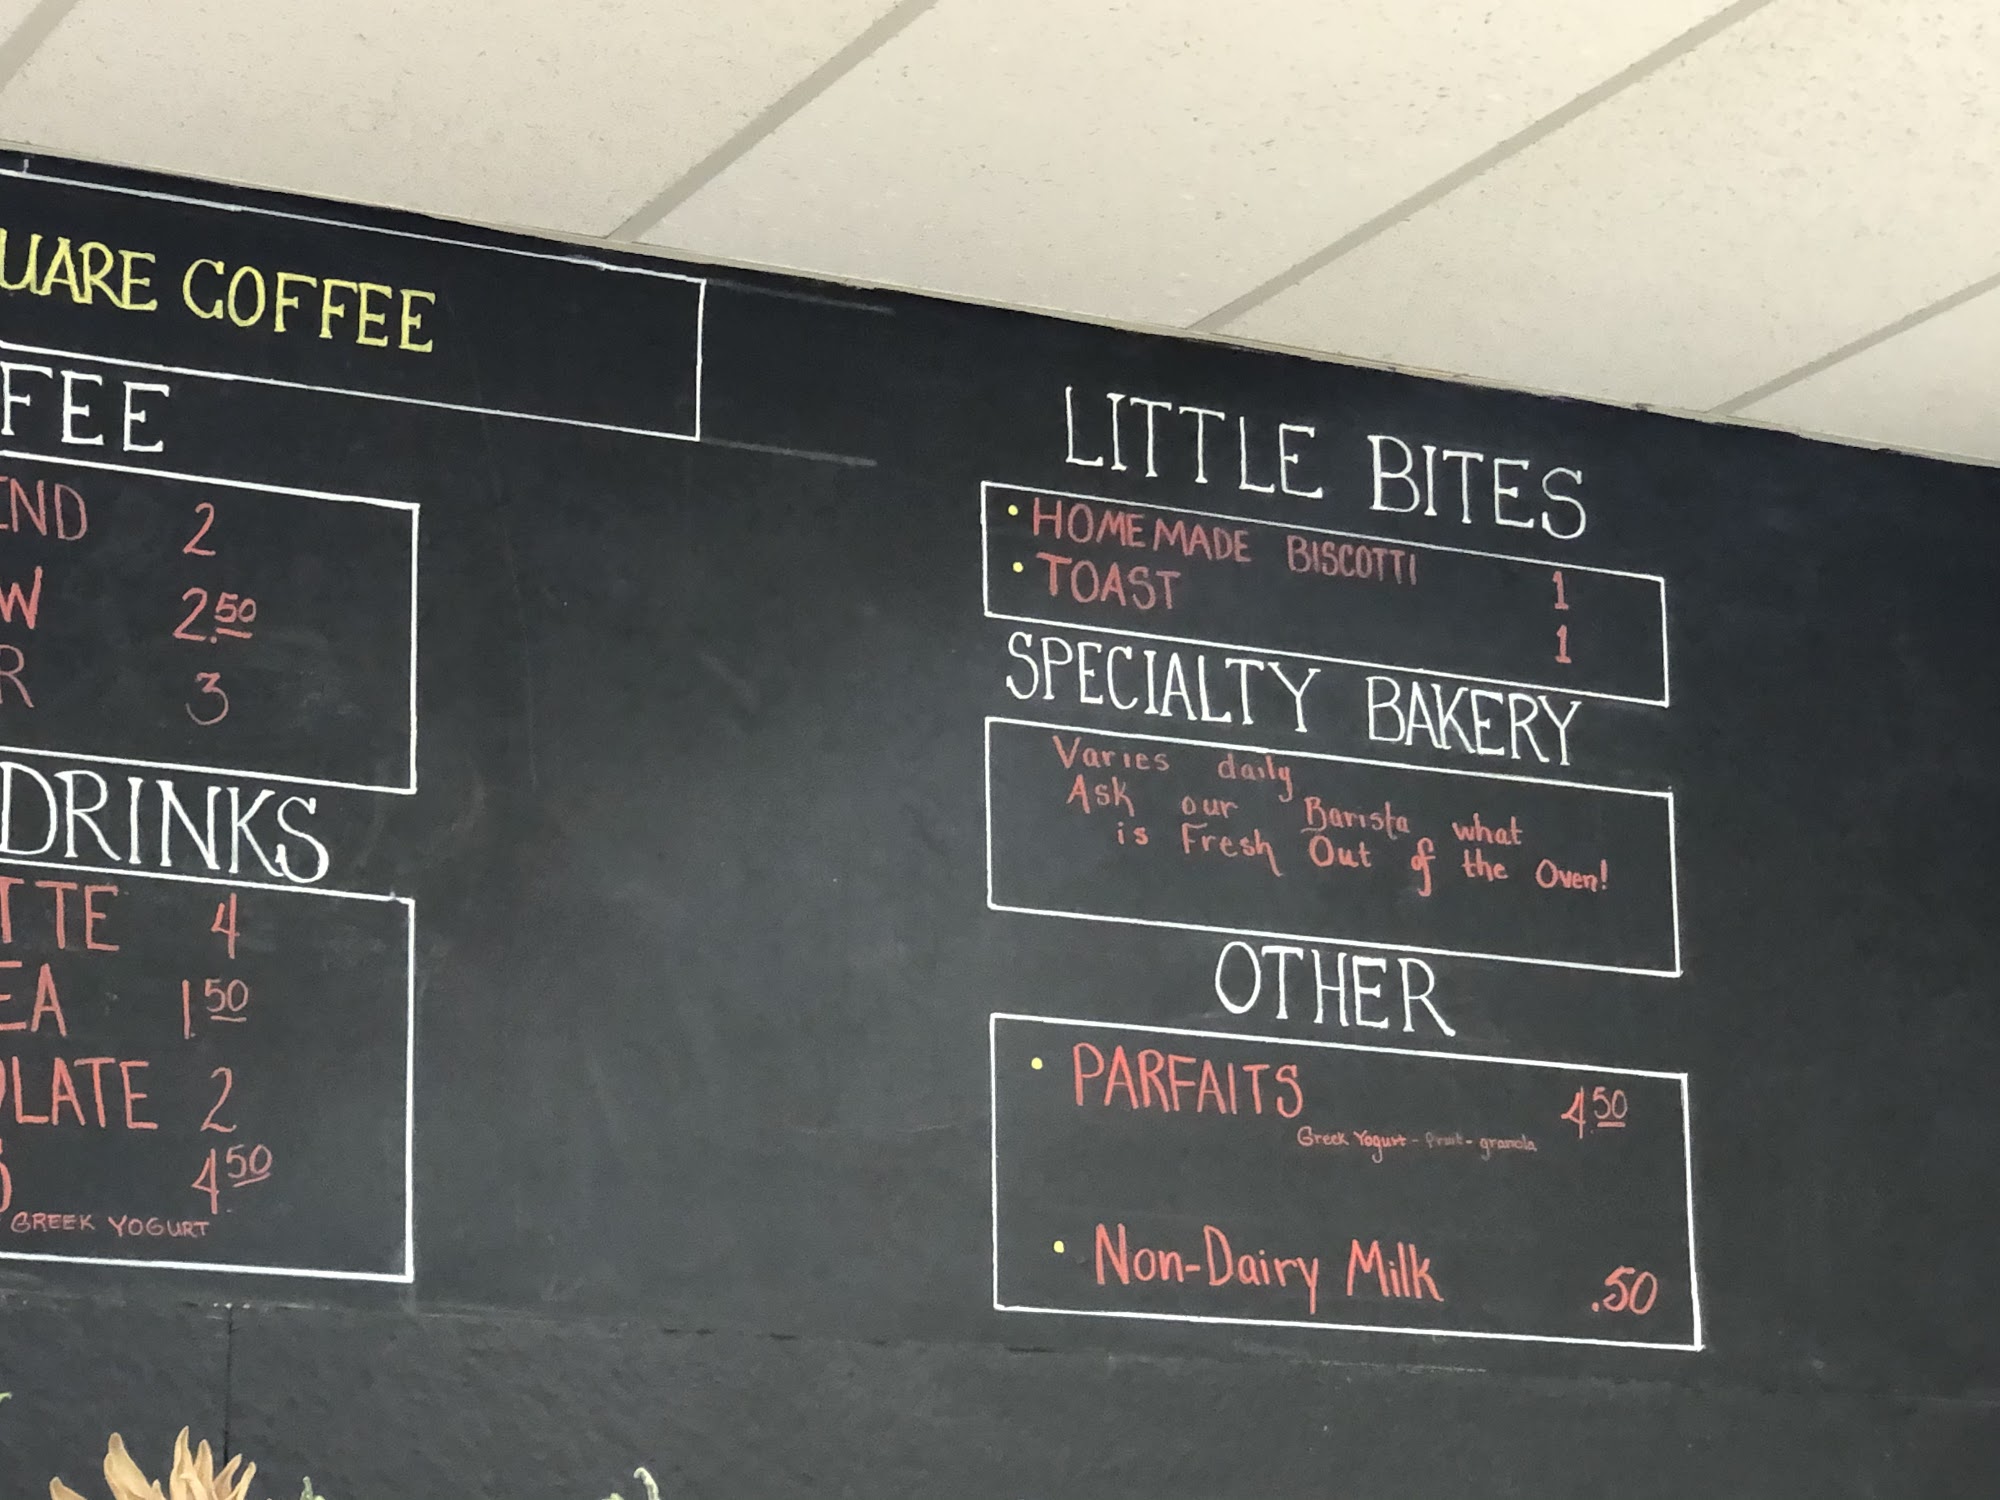 UARE COFFEE
FEE
END 2
W 2.50
R 3
DRINKS
TTE 4
EA 1.50
OLATE 2
S 4.50
GREEK YOGURT
LITTLE BITES
• HOMEMADE BISCOTTI 1
• TOAST 1
SPECIALTY BAKERY
Varies daily
Ask our Barista what
is Fresh Out of the Oven!
OTHER
• PARFAITS 4.50
Greek Yogurt - fruit - granola
• Non-Dairy Milk .50